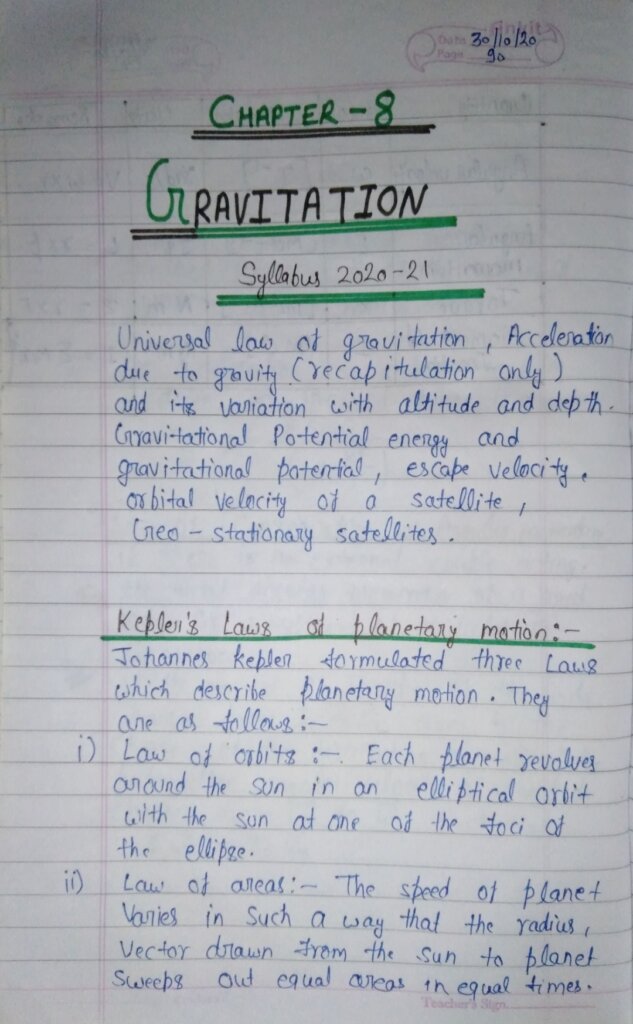 Date 30/10/20
Page 90
CHAPTER - 8
GRAVITATION
Syllabus 2020-21
Universal law of gravitation, Acceleration
due to gravity (recapitulation only)
and its variation with altitude and depth.
Gravitational Potential energy and
gravitational potential, escape velocity,
orbital velocity of a satellite,
Geo-stationary satellites.
Kepler's Laws of planetary motion:-
Johannes Kepler formulated three Laws
which describe planetary motion. They
are as follows:-
i) Law of orbits :- Each planet revolves
around the sun in an elliptical orbit
with the sun at one of the foci of
the ellipse.
ii) Law of areas:- The speed of planet
Varies in such a way that the radius,
vector drawn from the sun to planet
sweeps out equal areas in equal times.
Teacher's Sign